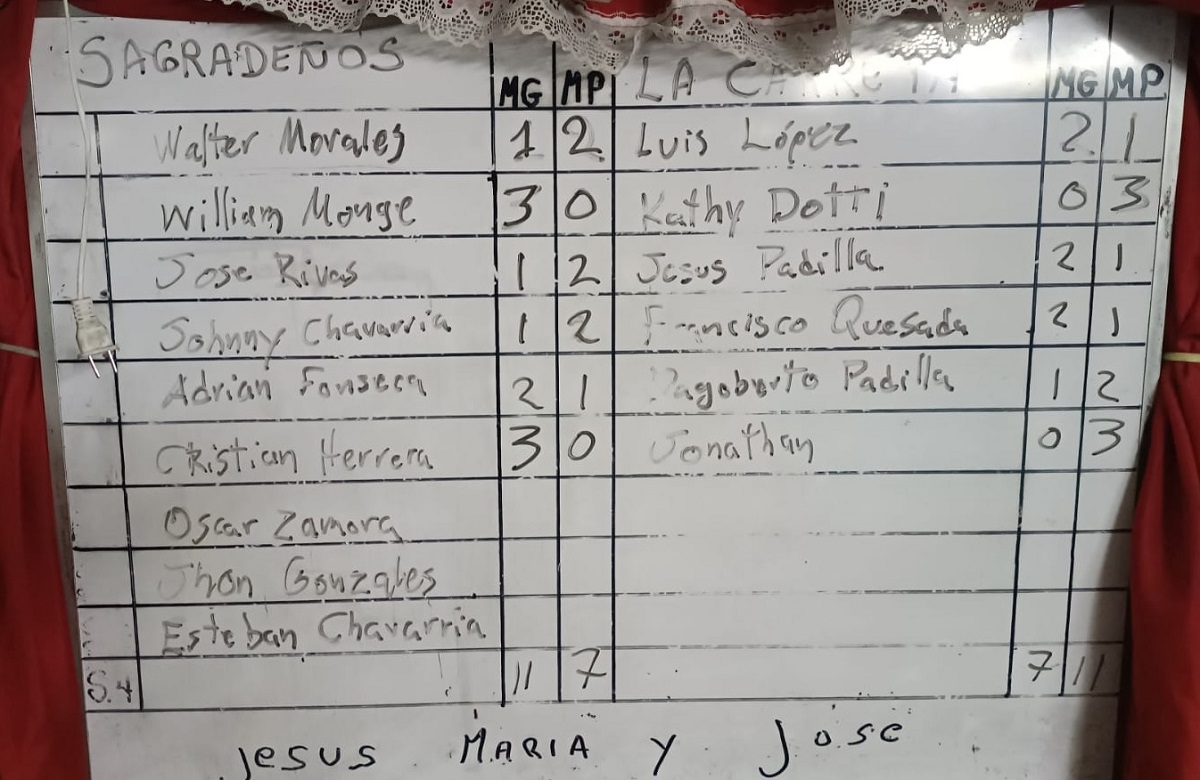 SAGRADEÑOS MG MP LA CARRETA MG MP
Walter Morales 1 2 Luis López 2 1
William Monge 3 0 Kathy Dotti 0 3
Jose Rivas 1 2 Jesus Padilla 2 1
Johnny Chavarria 1 2 Francisco Quesada 2 1
Adrian Fonseca 2 1 Dagoberto Padilla 1 2
Cristian Herrera 3 0 Jonathan 0 3
Oscar Zamora
Jhon Gonzales
Esteban Chavarria
S.4 11 7 7 11
JESUS MARIA Y JOSE